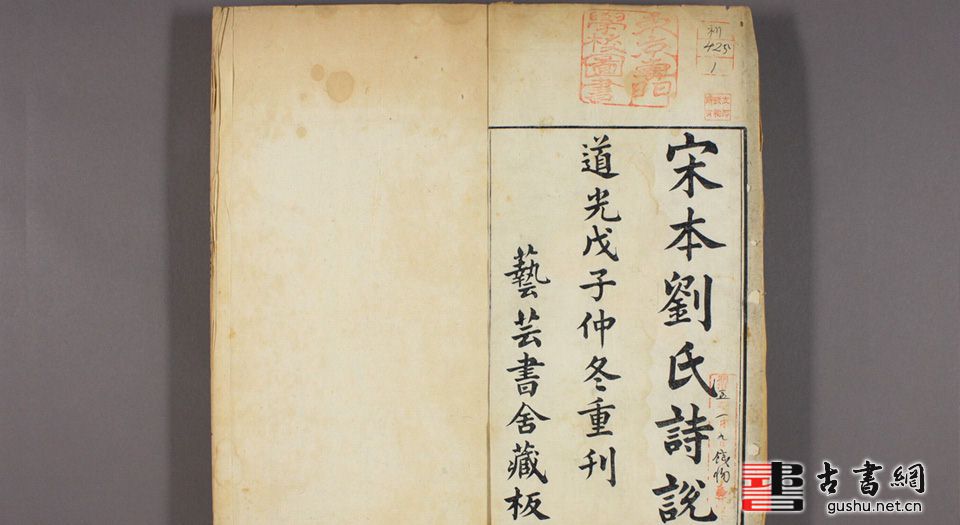 宋本劉氏詩說
道光戊子仲冬重刊
藝芸書舍藏板
東京專門
學校圖書
425
1
古書網
gushu.net.cn